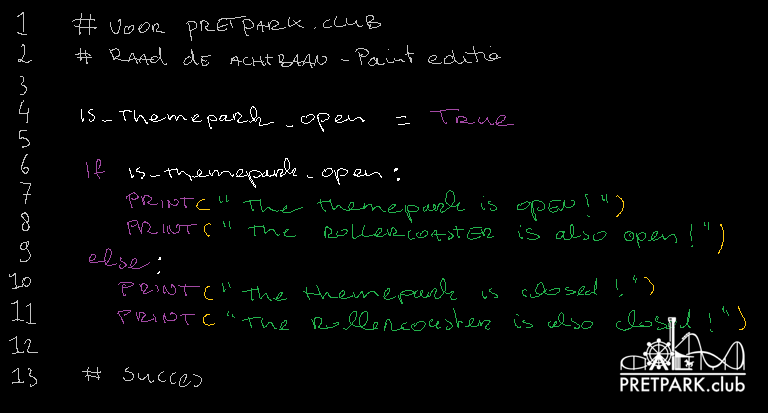 1 # VOOR PRETPARK.CLUB
2 # RAAD DE ACHTBAAN - Paint editie
3
4 is_Themepark_open = True
5
6 if is_themepark_open:
7 PRINT("The themepark is OPEN!")
8 PRINT("The ROLLERCOASTER is also open!")
9 else:
10 PRINT("The themepark is closed!")
11 PRINT("The Rollercoaster is also closed!")
12
13 # Succes
PRETPARK.club